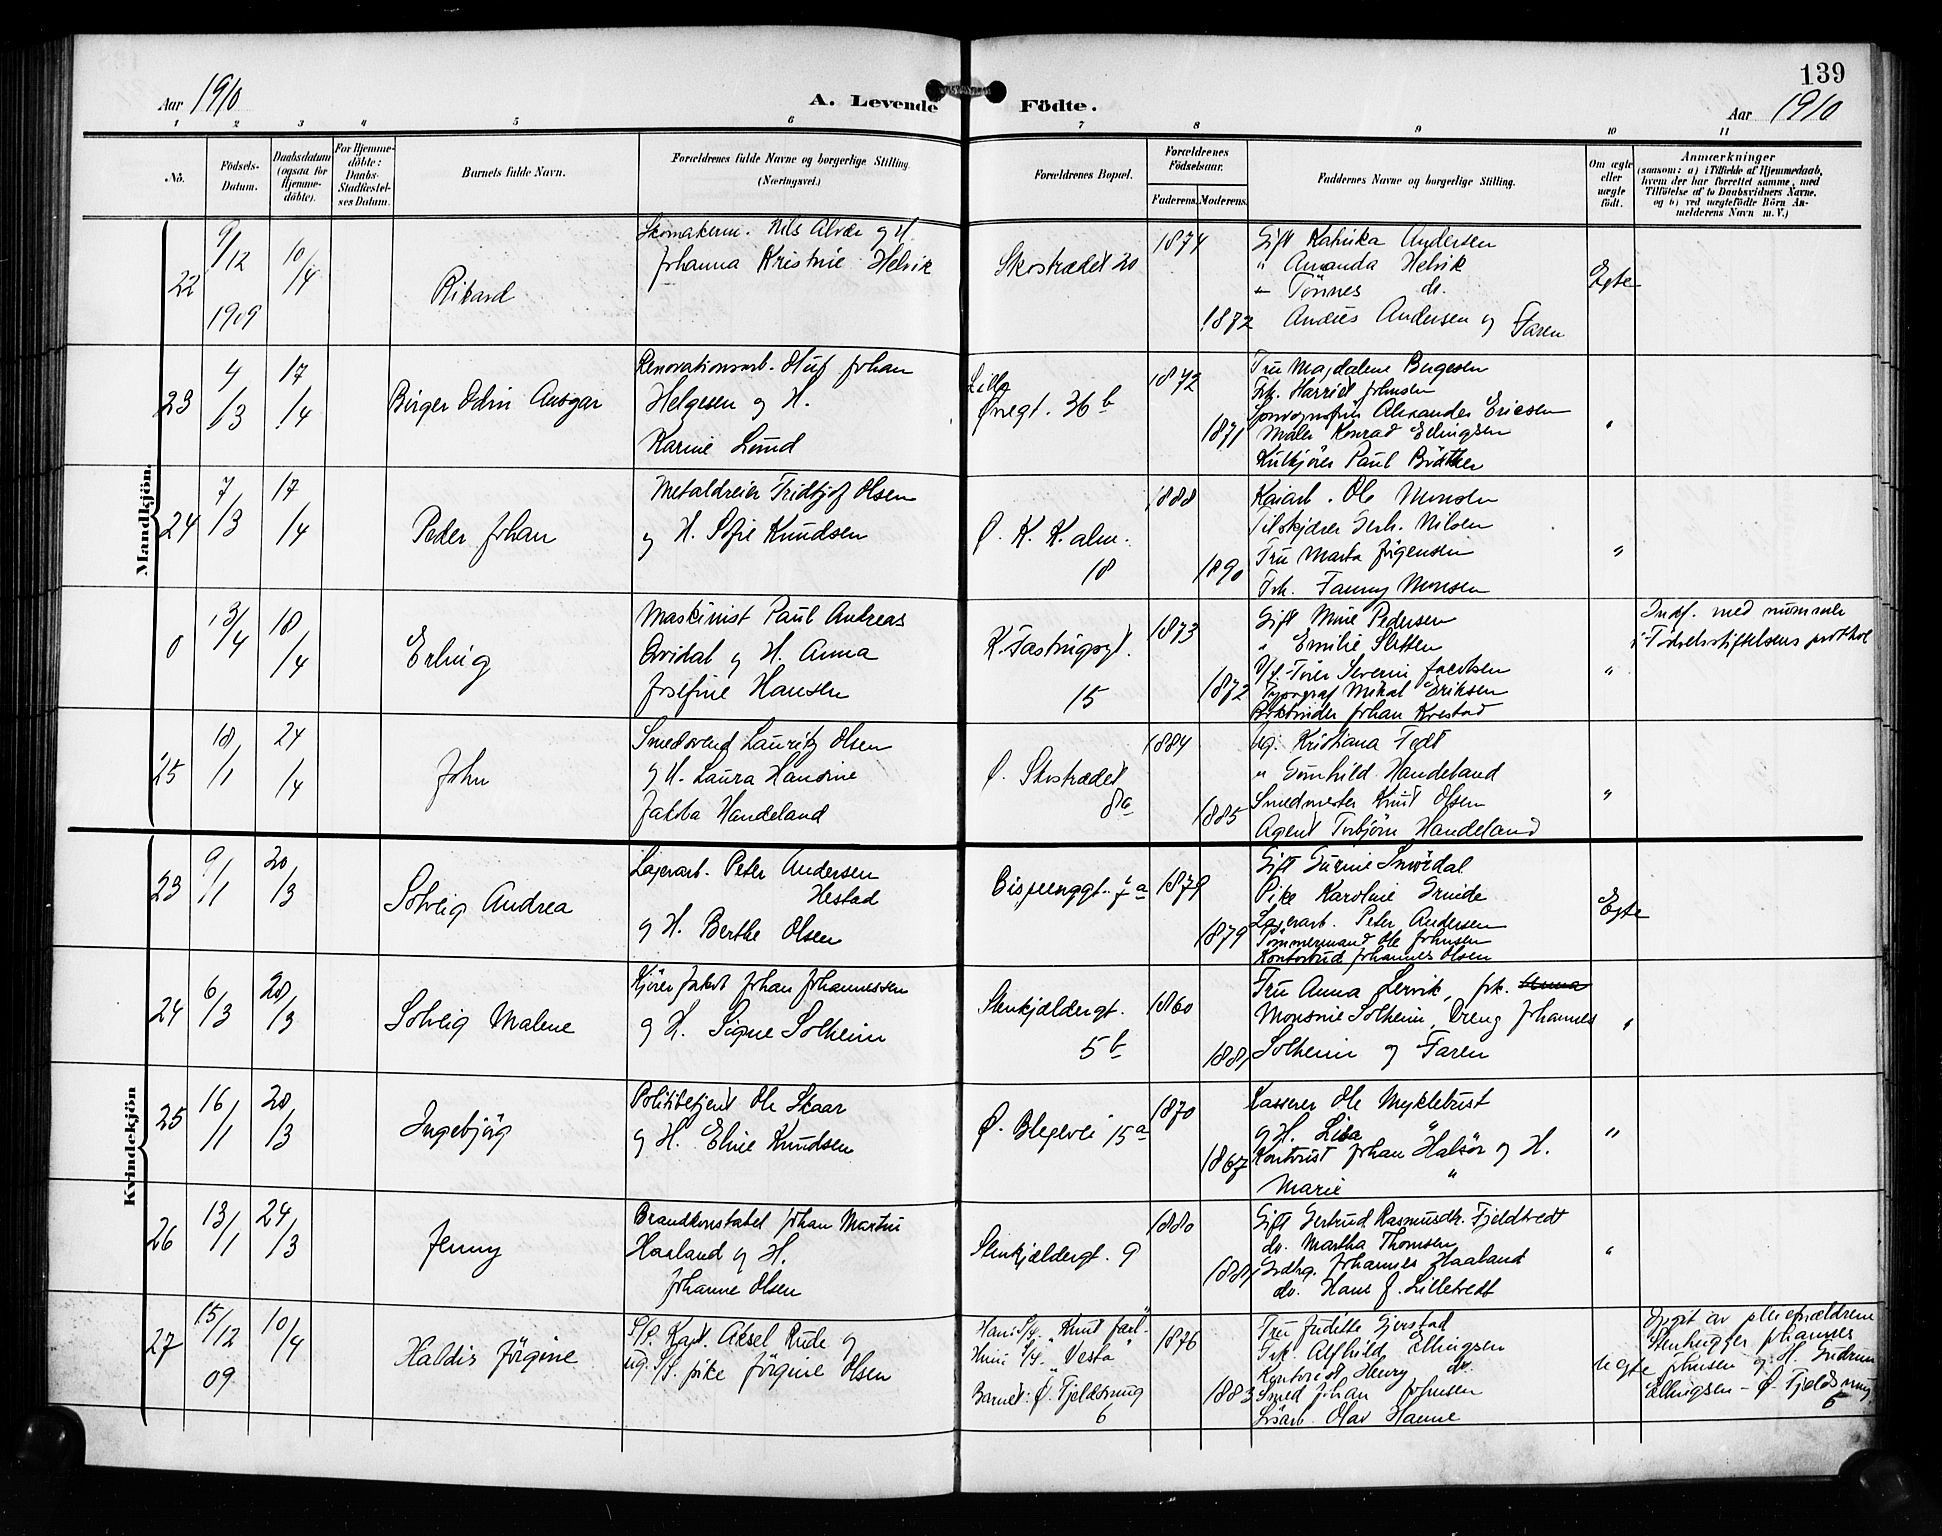 139
Aar 1910
A. Levende Födte.
Aar 1910
1 2 3 4 5 6 7 8 9 10 11
No.
Födsels-Datum.
Daabsdatum (ogsaa for Hjemmedöbte).
For Hjemmedöbte: Daabs-Stadfæstelses Datum.
Barnets fulde Navn.
Forældrenes fulde Navne og borgerlige Stilling.
(Næringsvei.)
Forældrenes Bopæl.
Forældrenes Födselsaar.
Faderens. Moderens.
Faddernes Navne og borgerlige Stilling.
Om ægte eller uægte födt.
Anmærkninger
(saasom: a) i Tilfælde af Hjemmedaab, hvem der har forrettet samme, med Tilföielse af to Daabsvidners Navne, og b) ved uægtefödte Börn Anmelderens Navn m. V.)
Mandkjön.
22
9/12 1909
10/4
Rikard
Skomakerm. Nils Alvær og H.
Johanna Kristine Helvik
Skostrædet 20
1874
1872
Gift Katrika Andersen
" Amanda Helvik
" Tönnes do.
Andres Andersen og Faren
Egte
23
4/3
17/4
Birger Odin Ansgar
Renovationsarb. Oluf Johan
Helgesen og H.
Karine Lund
Lille
Øvregt. 36 b
1872
1871
Fru Magdalene Bergesen
Frk. Harriet Johnsen
Alexander Ericsen
Maler Konrad Ellingsen
Kulkjörer Paul
"
24
7/3
17/4
Peder Johan
Metaldreier Fridtjof Olsen
og H. Sofie Knudsen
Ø. K. K. alm.
18
1888
1890
Kaiarb. Ole Monsen
Tilskjærer Gerh. Nilsen
Fru Marta Jörgensen
Frk. Fanny Monsen
"
0
13/4
18/4
Erling
Maskinist Paul Andreas
Arvidal og H. Anna
Josefine Hansen
K. Fastingsgt.
15
1873
1872
Gift Mine Pedersen
" Emilie Sletten
Severin Jacobsen
Typograf Mikal Eriksen
Bokbinder Johan Krestad
"
Indf. med nummer
i Födselsstiftelsens protkol
25
18/1
24/4
John
Smedsvend Lauritz Olsen
og H. Laura Handine
Jakoba Handeland
Ø. Skostrædet
8a
1884
1885
Ug. Kristiana Tedt
" Gunhild Handeland
Smedmester Knut Olsen
Agent Torbjörn Handeland
"
Kvindekjön
23
9/1
20/3
Solveig Andrea
Lagerarb. Peter Andersen
Hestad
og H. Berthe Olsen
Bispenggt. 7a
1879
1879
Gift Gurine Smördal
Pike Karoline Grinde
Lagerarb. Peter Andersen
Tömmermand Ole Johnsen
Kontorbud Johannes Olsen
Egte
24
6/3
28/3
Solveig Malene
Kjörer Jakob Johan Johannessen
og H. Signe Solheim
Stenkjældergt.
5 b
1860
1881
Fru Anna Lervik, frk. Anna
Monsine Solheim, Dreng Johannes
Solheim og Faren
"
25
16/1
20/3
Ingebjörg
Politibetjent Ole Skaar
og H. Eline Knudsen
Ø. Blegevei 15a
1870
1867
Kasserer Ole Myklebust
og H. Lisa "
Kontorist Johan Halsör og H.
Marie "
"
26
13/1
24/3
Jenny
Brandkonstabel Johan Martin
Haaland og H.
Johanne Olsen
Stenkjældergt. 9
1880
1881
Gift Gertrud Rasmusdtr. Fjeldtvedt
do. Martha Thomsen
Grdbr. Johannes Haaland
do. Hans J. Lilletvedt
"
27
15/12 09
10/4
Haldis Jörgine
S/S. Karl Aksel Rude og
ug. S/S. pike Jörgine Olsen
Han: S/S. "Knut Jarl"
Hun: S/S. "Vesta"
Barnet: Ø. Fjeldsmug
6
1876
1883
Fru Juditte Gjerstad
Frk. Alfhild Ellingsen
Kontorist Henry do.
Smed Johan Johnsen
Olav Hanne
Uegte
Opgit av pleieforældrene
Stenhugger Johannes
Johnsen og H. Gudrun
Ellingsen - Ø. Fjeldsmug
6